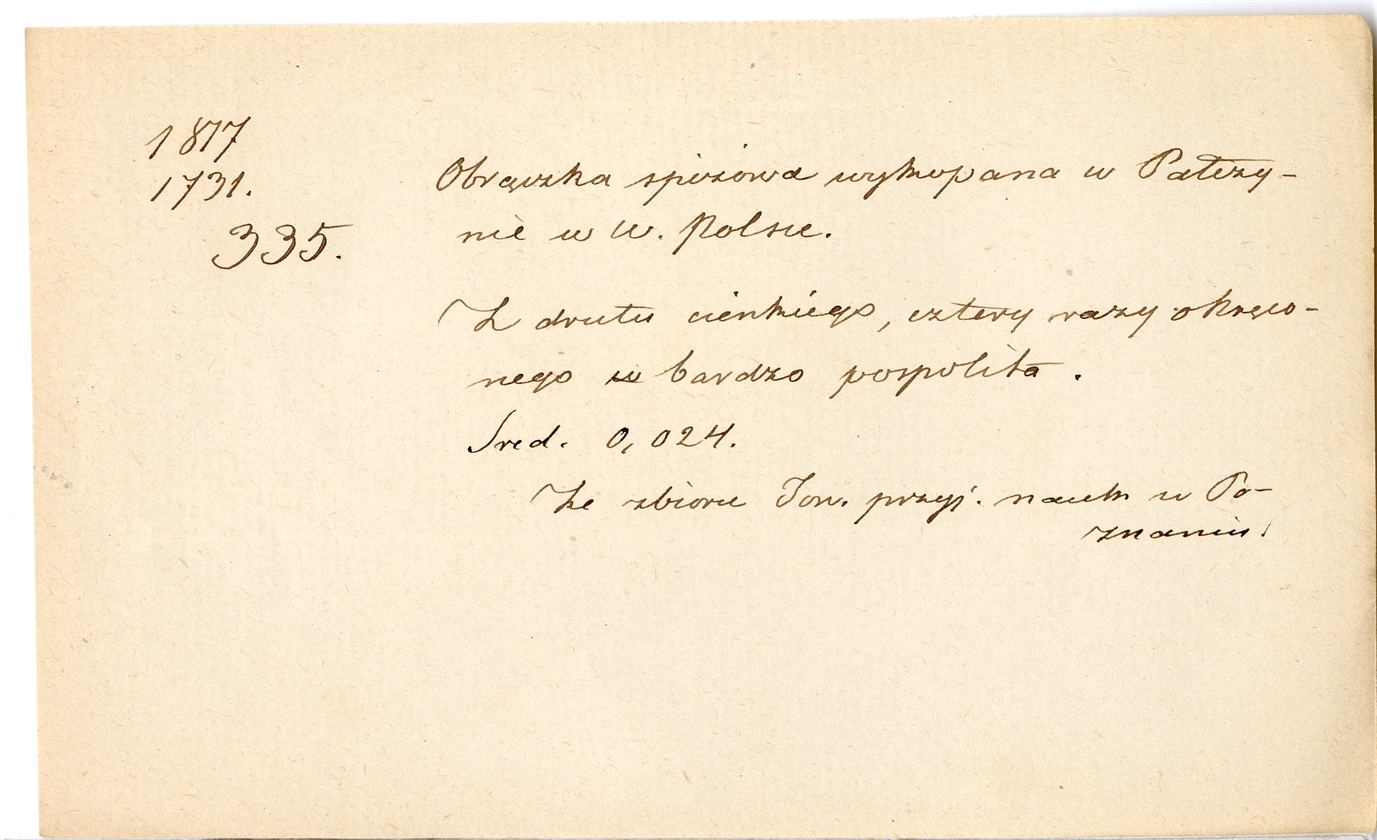 1877
1731.
335.
Obrączka spiżowa wykopana w Pałczy-
nie w W. Polsce.
Z drutu cienkiego, cztery razy okręco-
nego bardzo pospolita.
Śred. 0,024.
Ze zbioru Tow. przyj. nauk w Po-
znaniu.